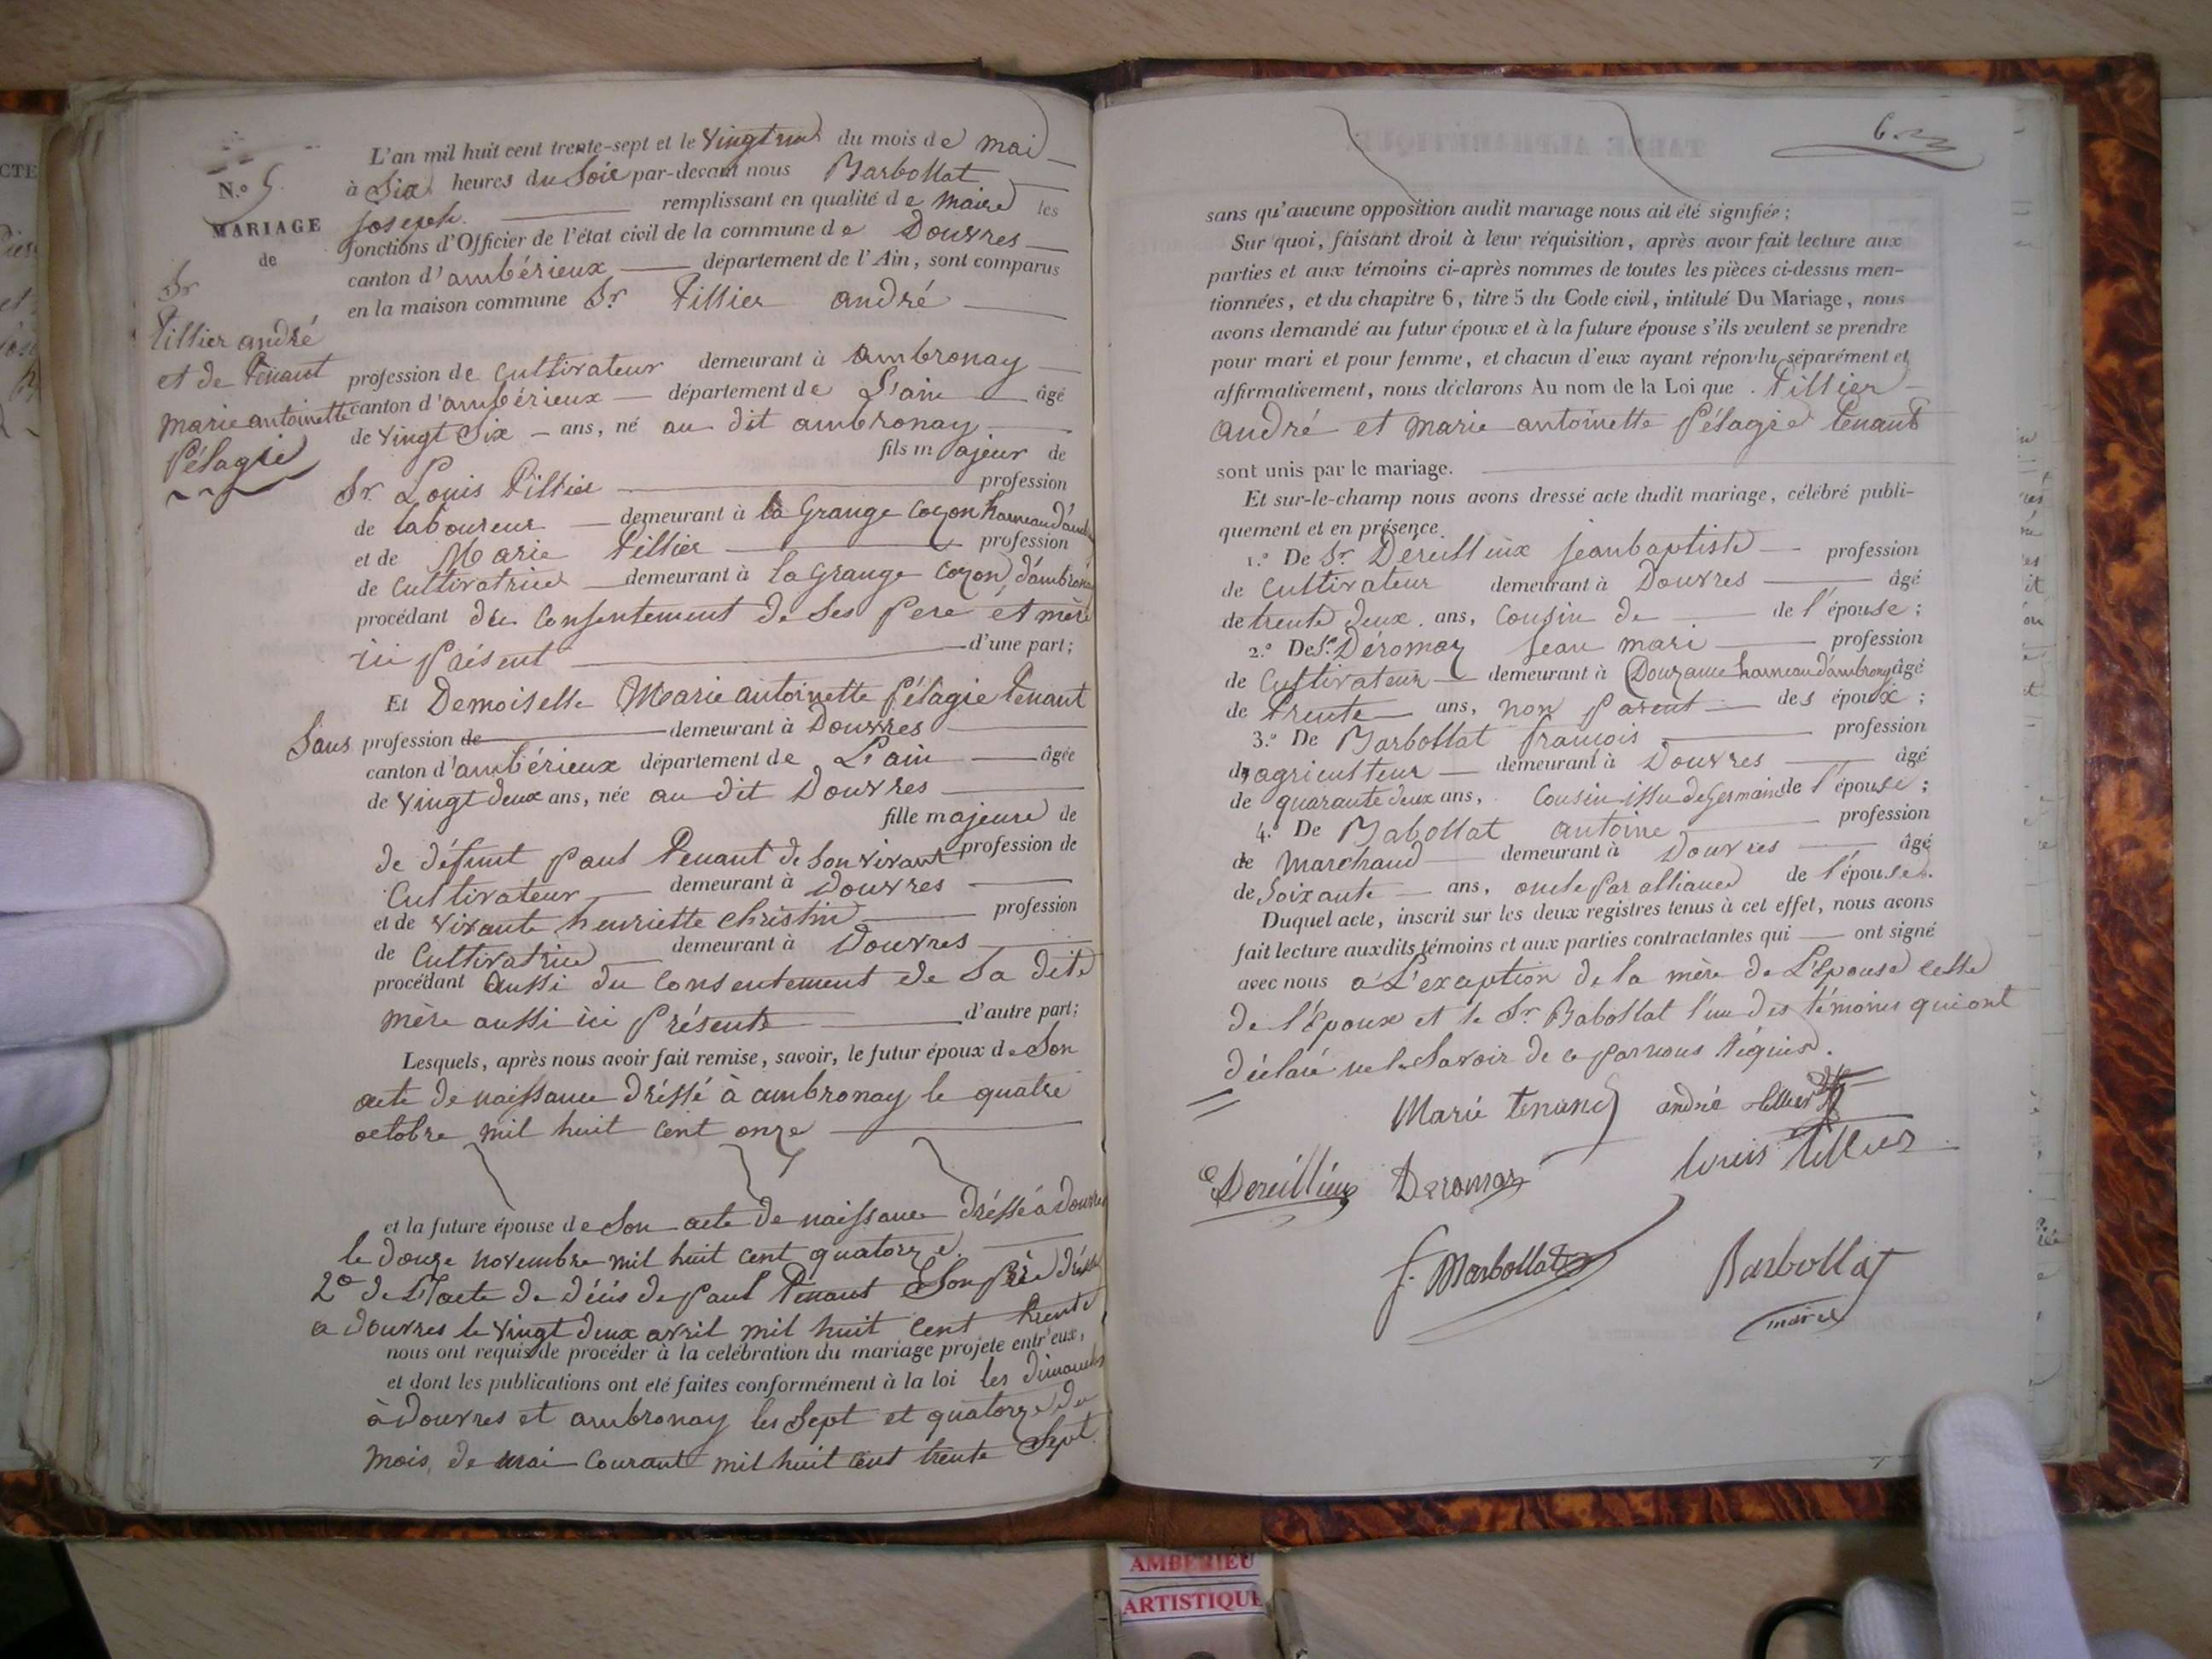 N.° 5.
MARIAGE
de
Sr
Tillier andré
et de Tenant
marie antoinette
Pélagie
L'an mil huit cent trente-sept et le vingt du mois de mai
à Six heures du Soir par-devant nous Barbollat
joseph. remplissant en qualité de maire les
fonctions d'Officier de l'état civil de la commune de Douvres
canton d'ambérieux département de l'Ain, sont comparus
en la maison commune Sr. Tillier andré
profession de cultivateur demeurant à ambronay
canton d'ambérieux département de L'ain âgé
de vingt Six ans, né au dit ambronay
fils majeur de
Sr Louis Tillier profession
de laboureur demeurant à la Grange Cozon hameau
et de Marie Tillier profession
de Cultivatrice demeurant à la Grange Cozon d'ambronay
procédant du Consentement de Ses Pere et mère
ici Présent d'une part;
Et Demoiselle Marie antoinette Pélagie Tenant
Sans profession de demeurant à Douvres
canton d'ambérieux département de L'ain âgée
de vingt deux ans, née au dit Douvres
fille majeure de
de défunt Paul Tenant de Son vivant profession de
Cultivateur demeurant à Douvres
et de vivante henriette Christin profession
de Cultivatrice demeurant à Douvres
procédant aussi du Consentement de Sa dite
mère aussi ici Présente d'autre part;
Lesquels, après nous avoir fait remise, savoir, le futur époux de Son
acte de naissance dréssé à ambronay le quatre
octobre mil huit cent onze
et la future épouse de Son acte de naissance dréssé à douvres
le douze novembre mil huit cent quatorze.
2° de L'acte de décès de Paul Tenant Son Père dréssé
a douvres le vingt deux avril mil huit cent trente
nous ont requis de procéder à la celébration du mariage projeté entr'eux,
et dont les publications ont été faites conformément à la loi les dimanches
à Douvres et ambronay les Sept et quatorze du
mois de mai Courant mil huit cent trente Sept.
sans qu'aucune opposition audit mariage nous ait été signifiée;
Sur quoi, faisant droit à leur réquisition, après avoir fait lecture aux
parties et aux témoins ci-après nommes de toutes les pièces ci-dessus men-
tionnées, et du chapitre 6, titre 5 du Code civil, intitulé Du Mariage, nous
avons demandé au futur époux et à la future épouse s'ils veulent se prendre
pour mari et pour femme, et chacun d'eux ayant répondu séparément et
affirmativement, nous déclarons Au nom de la Loi que Tillier
André et Marie antoinette Pélagie tenant
sont unis par le mariage.
Et sur-le-champ nous avons dressé acte dudit mariage, célébré publi-
quement et en présence
1.° De Sr. Déreillieux jeanbaptiste profession
de Cultivateur demeurant à Douvres âgé
de trente deux ans, Cousin de de l'épouse;
2.° De Sr. Déromaz jean mari profession
de Cultivateur demeurant à hameau d'ambronay âgé
de trente ans, non Parent des époux;
3.° De Barbollat françois profession
de agriculteur demeurant à Douvres âgé
de quarante deux ans, Cousin issu de Germain de l'épouse;
4.° De Babollat antoine profession
de Marchand demeurant à Douvres âgé
de Soixante ans, oncle Par alliance de l'épouse.
Duquel acte, inscrit sur les deux registres tenus à cet effet, nous avons
fait lecture auxdits témoins et aux parties contractantes qui ont signé
avec nous a L'exception de la mère de L'Epouse celle
de l'Epoux et le Sr. Babollat l'un des témoins qui ont
déclaré ne le Savoir de ce par nous réquis.
Marie tenand andré tillier
Dereillieu Deromaz louis tillier
f. Barbollat Barbollat
maire
AMBERIEU
ARTISTIQUE